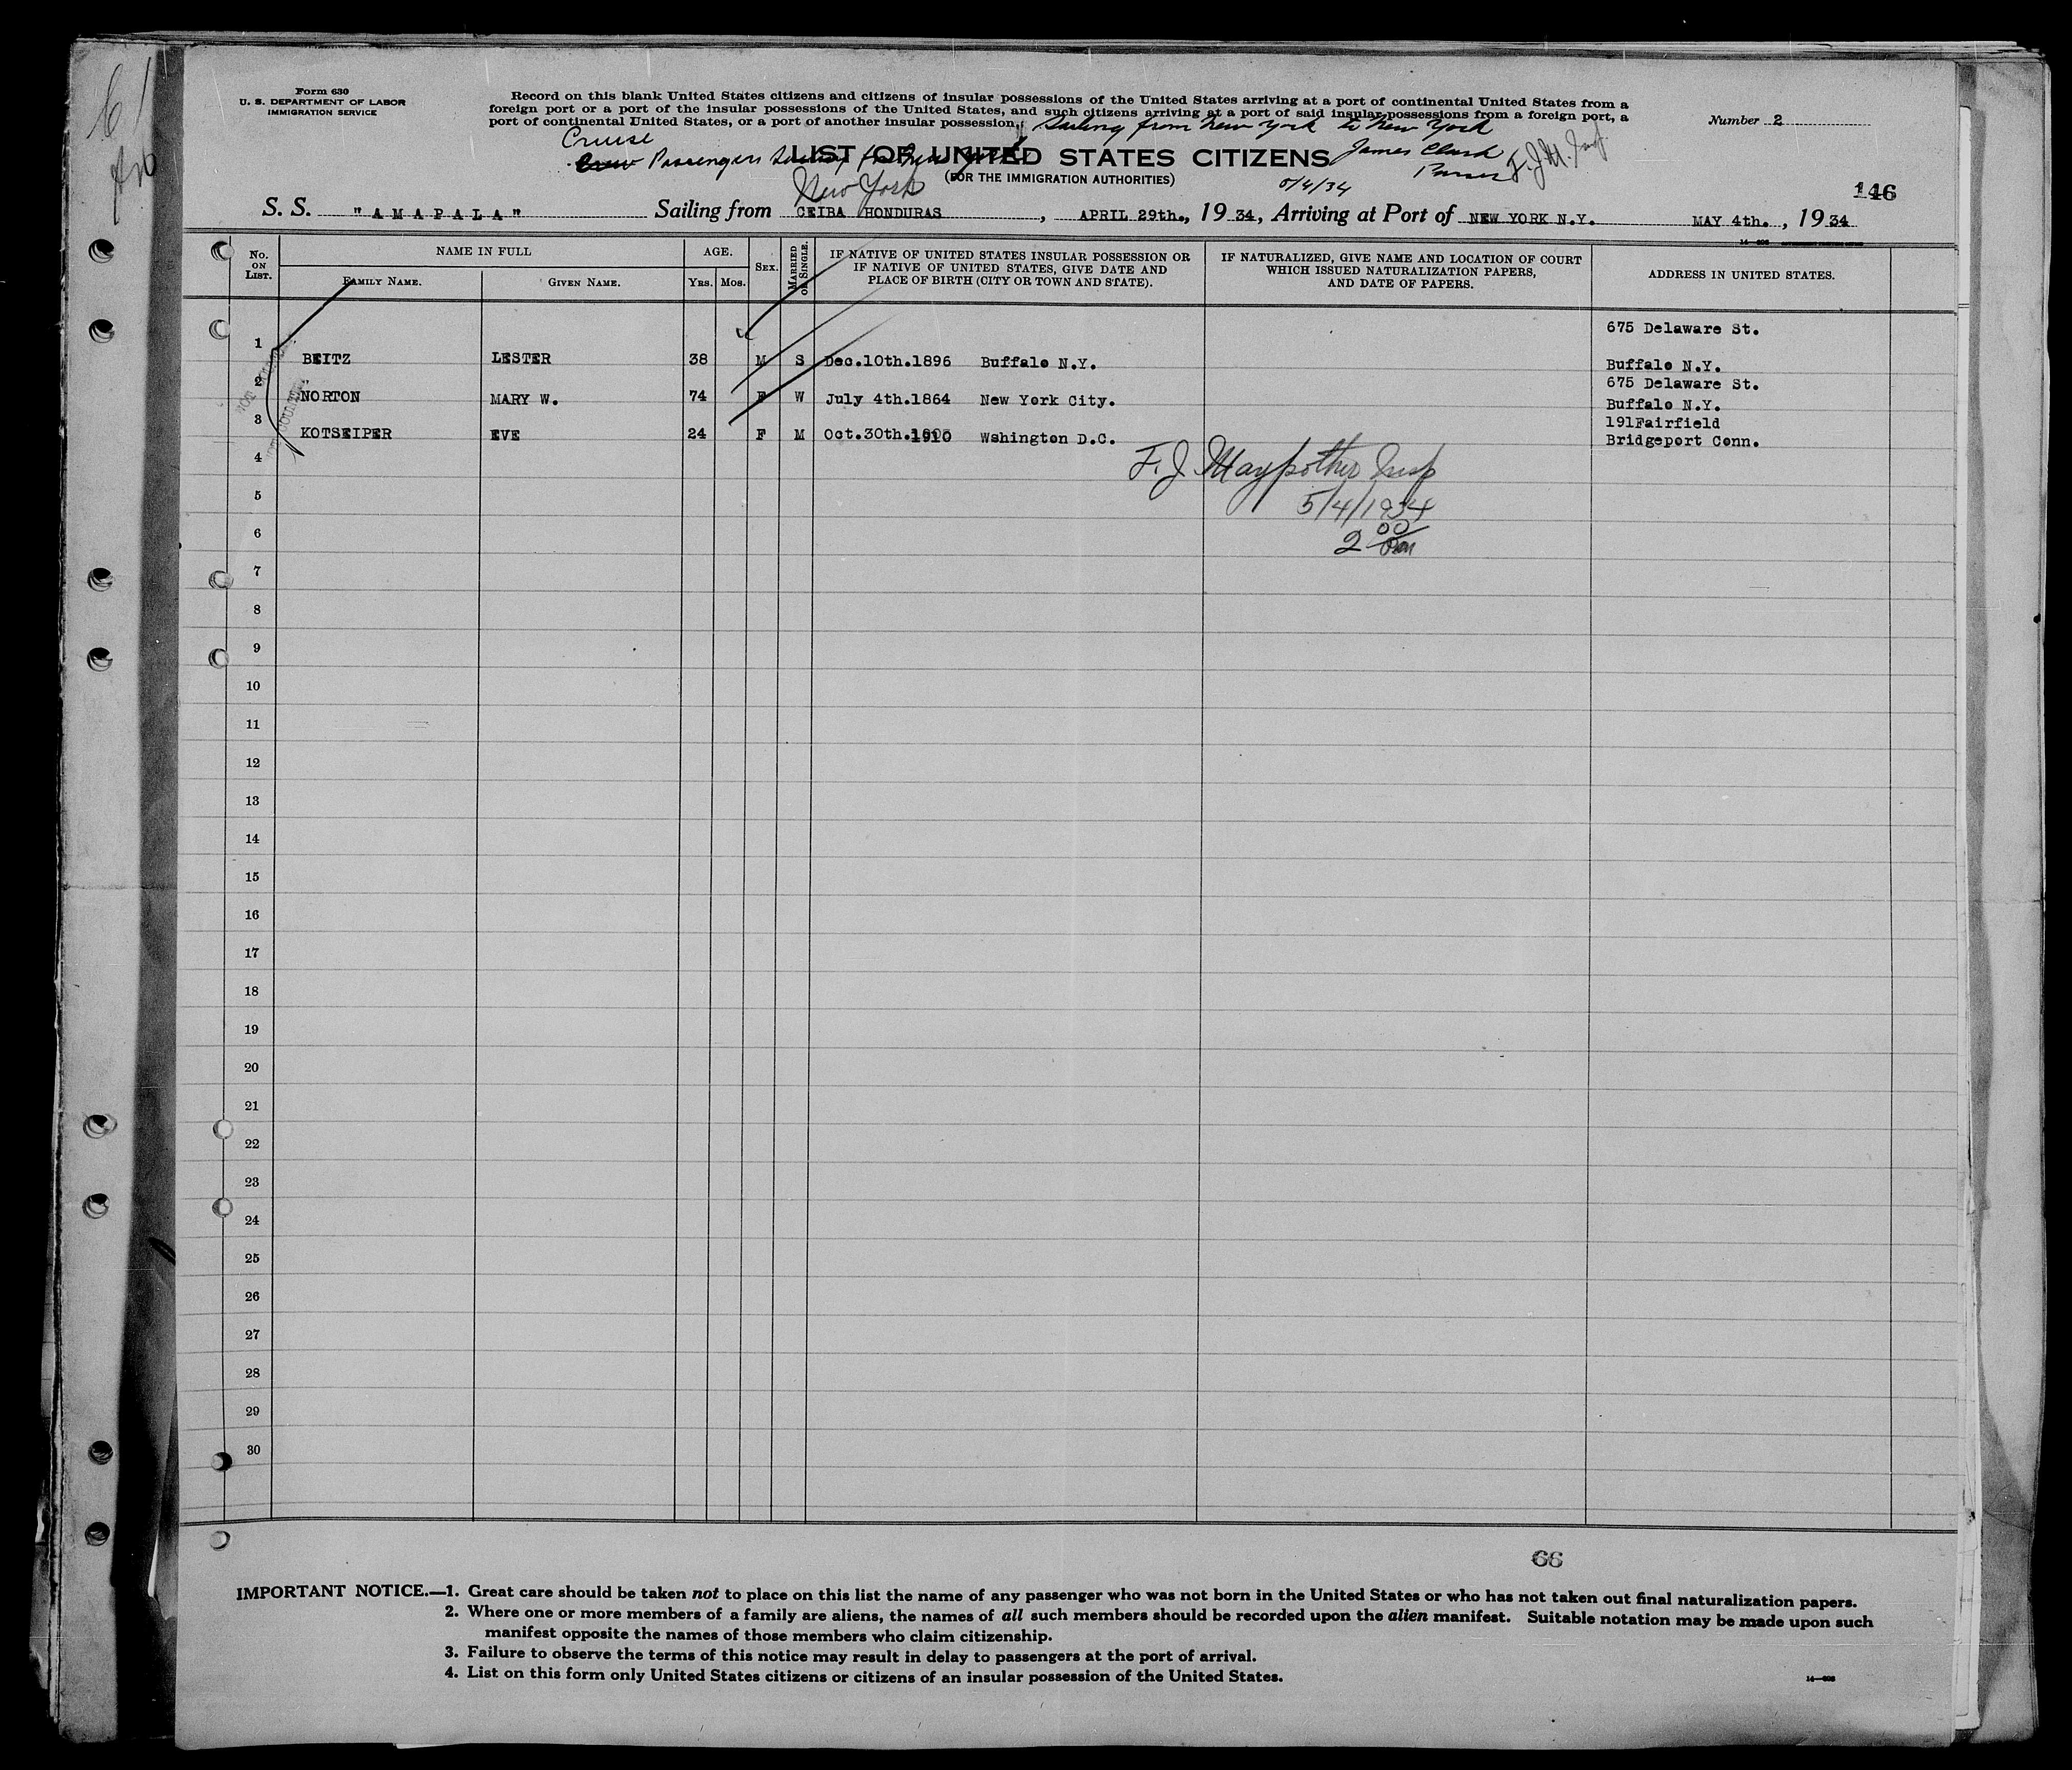 Form 630
U. S. DEPARTMENT OF LABOR
IMMIGRATION SERVICE
Record on this blank United States citizens and citizens of insular possessions of the United States arriving at a port of continental United States from a
foreign port or a port of the insular possessions of the United States, and such citizens arriving at a port of said insular possessions from a foreign port, a
port of continental United States, or a port of another insular possession.
Sailing from New York to New York
Number 2
Cruise
Passengers
LIST OF UNITED STATES CITIZENS
James Clark
Purser
F. J. M. Insp
(FOR THE IMMIGRATION AUTHORITIES)
New York
5/4/34
146
S. S. "AMAPALA" Sailing from CEIBA HONDURAS, APRIL 29th., 1934, Arriving at Port of NEW YORK N.Y. MAY 4th., 1934
No. ON LIST. NAME IN FULL AGE. SEX. MARRIED OR SINGLE. IF NATIVE OF UNITED STATES INSULAR POSSESSION OR IF NATIVE OF UNITED STATES, GIVE DATE AND PLACE OF BIRTH (CITY OR TOWN AND STATE). IF NATURALIZED, GIVE NAME AND LOCATION OF COURT WHICH ISSUED NATURALIZATION PAPERS, AND DATE OF PAPERS. ADDRESS IN UNITED STATES.
FAMILY NAME. GIVEN NAME. YRS. MOS.
675 Delaware St.
1 BEITZ LESTER 38 M S Dec.10th.1896 Buffalo N.Y. Buffalo N.Y.
675 Delaware St.
2 NORTON MARY W. 74 F W July 4th.1864 New York City. Buffalo N.Y.
191Fairfield
3 KOTSEIPER EVE 24 F M Oct.30th.1910 Wshington D.C. Bridgeport Conn.
4
F. J. Maypother Insp
5
5/4/1934
6
2 00 PM
7
8
9
10
11
12
13
14
15
16
17
18
19
20
21
22
23
24
25
26
27
28
29
30
66
IMPORTANT NOTICE.—1. Great care should be taken not to place on this list the name of any passenger who was not born in the United States or who has not taken out final naturalization papers.
2. Where one or more members of a family are aliens, the names of all such members should be recorded upon the alien manifest. Suitable notation may be made upon such
manifest opposite the names of those members who claim citizenship.
3. Failure to observe the terms of this notice may result in delay to passengers at the port of arrival.
4. List on this form only United States citizens or citizens of an insular possession of the United States.